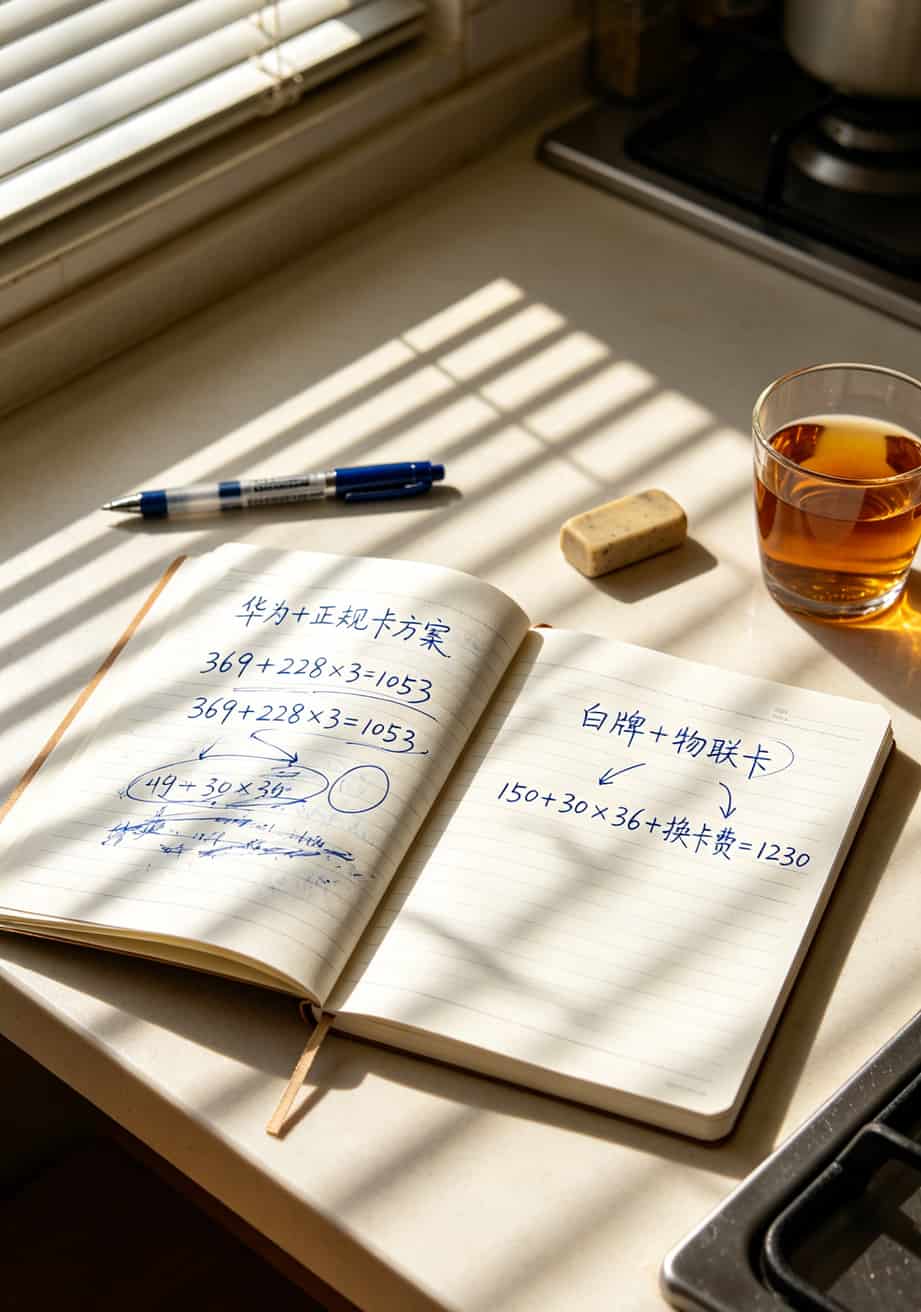 华为+正规卡方案
369+228×3=1053
369+228×3=1053
49+30×36
白牌+物联卡
150+30×36+换卡费=1230